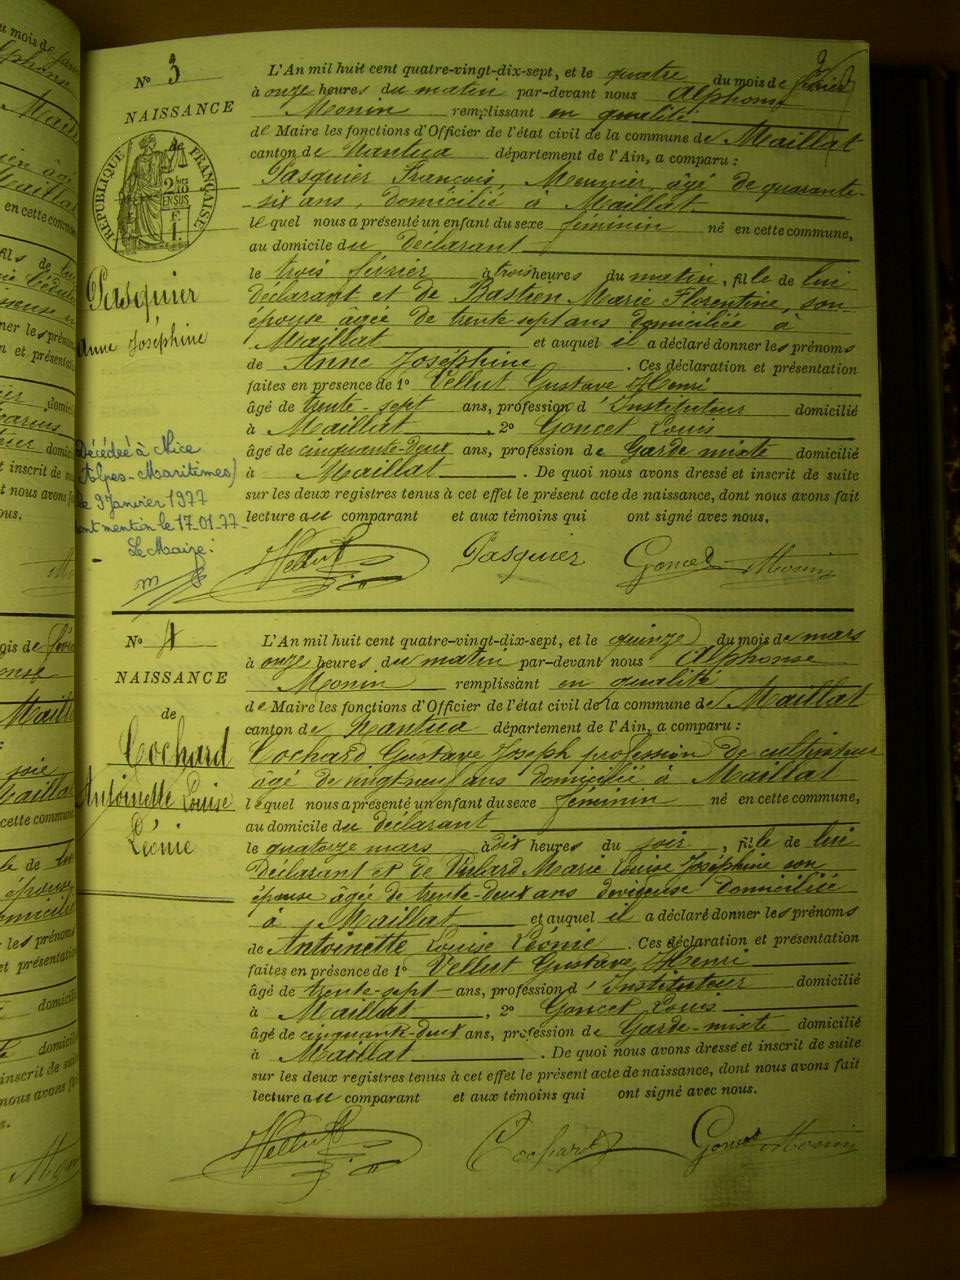 N° 3
NAISSANCE
de
RÉPUBLIQUE FRANÇAISE
Pasquier
Anne Joséphine
Décédée à Nice
(Alpes-Maritimes)
le 9 Janvier 1977
dont mention le 17.01.77
Le Maire:
L'An mil huit cent quatre-vingt-dix-sept, et le quatre du mois de février
à onze heures du matin par-devant nous Alphonse
Monin remplissant en qualité
de Maire les fonctions d'Officier de l'état civil de la commune de Maillat
canton de Nantua département de l'Ain, a comparu :
Pasquier François, Meunier, âgé de quarante-
six ans, domicilié à Maillat
lequel nous a présenté un enfant du sexe féminin né en cette commune,
au domicile du déclarant
le trois février à trois heures du matin, fille de lui
déclarant et de Bastien Marie Florentine, son
épouse âgée de trente sept ans domiciliée à
Maillat et auquel il a déclaré donner les prénoms
de Anne Joséphine. Ces déclaration et présentation
faites en presence de 1° Vellut Gustave Henri
âgé de trente-sept ans, profession d'Instituteur domicilié
à Maillat, 2° Goncet Louis
âgé de cinquante-deux ans, profession de Garde mixte domicilié
à Maillat. De quoi nous avons dressé et inscrit de suite
sur les deux registres tenus à cet effet le présent acte de naissance, dont nous avons fait
lecture au comparant et aux témoins qui ont signé avec nous.
Vellut Pasquier Goncet Monin
N° 4
NAISSANCE
de
Cochard
Antoinette Louise
Léonie
L'An mil huit cent quatre-vingt-dix-sept, et le quinze du mois de mars
à onze heures du matin par-devant nous Alphonse
Monin remplissant en qualité
de Maire les fonctions d'Officier de l'état civil de la commune de Maillat
canton de Nantua département de l'Ain, a comparu :
Cochard Gustave Joseph profession de cultivateur
âgé de vingt neuf ans domicilié à Maillat
lequel nous a présenté un enfant du sexe féminin né en cette commune,
au domicile du déclarant
le quatorze mars à dix heures du soir, fille de lui
déclarant et de Marie Louise Joséphine son
épouse âgée de trente-deux ans domiciliée
à Maillat et auquel il a déclaré donner les prénoms
de Antoinette Louise Léonie. Ces déclaration et présentation
faites en présence de 1° Vellut Gustave Henri
âgé de trente-sept ans, profession d'Instituteur domicilié
à Maillat, 2° Goncet Louis
âgé de cinquante-deux ans, profession de Garde-mixte domicilié
à Maillat. De quoi nous avons dressé et inscrit de suite
sur les deux registres tenus à cet effet le présent acte de naissance, dont nous avons fait
lecture au comparant et aux témoins qui ont signé avec nous.
Vellut Cochard Goncet Monin